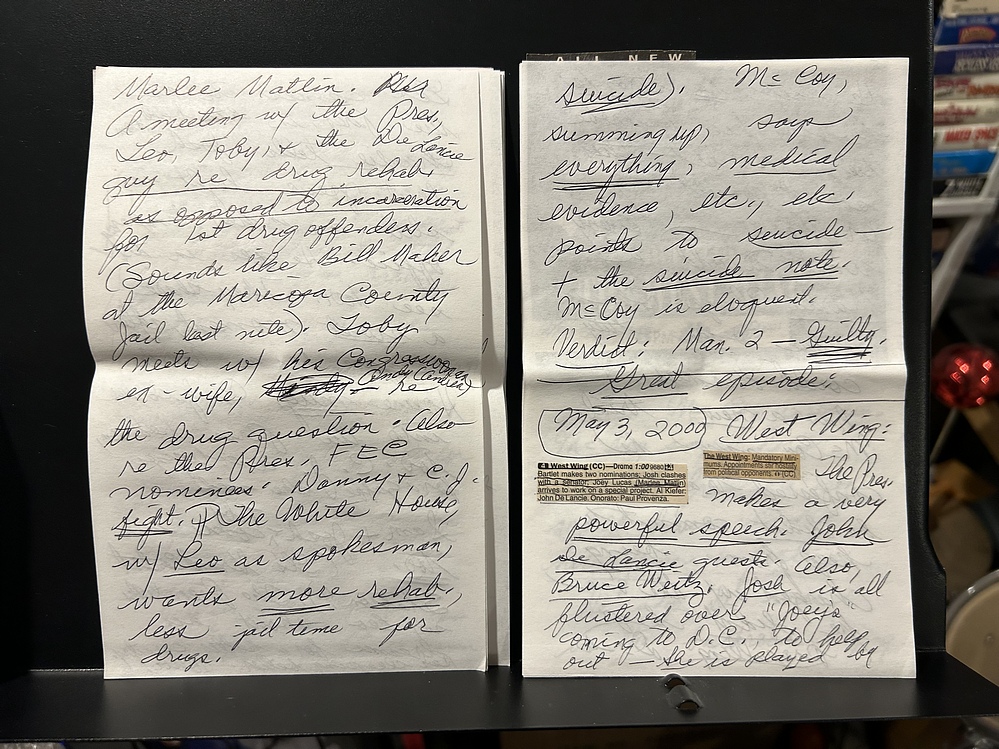 Marlee Matlin.
A meeting w/ the Pres.,
Leo, Toby, + the De Lancie
guy re drug rehab.
as opposed to incarceration
for 1st drug offenders.
(Sounds like Bill Maher
at the Maricopa County
Jail last nite). Toby
meets w/ his Congresswoman
ex-wife, Andy (Andrea) re
the drug question. Also
re the Pres. FEC
nominees. Danny + C.J.
fight. The White House,
w/ Leo as spokesman,
wants more rehab.,
less jail time for
drugs.
ALL NEW
suicide). McCoy,
summing up, says
everything, medical
evidence, etc., etc.
points to suicide—
+ the suicide note.
McCoy is eloquent.
Verdict: Man. 2 — Guilty.
Great episode.
May 3, 2000 West Wing:
West Wing (CC)—Drama 1:00 9680
Bartlet makes two nominations; Josh clashes
with a senator; Joey Lucas (Marlee Matlin)
arrives to work on a special project. Al Kiefer:
John De Lancie. Onorato: Paul Provenza.
The West Wing: Mandatory Mini-
mums. Appointments stir hostility
from political opponents. (CC)
The Pres.
makes a very
powerful speech. John
De Lancie guests. Also,
Bruce Weitz. Josh is all
flustered over "Joey's"
coming to D.C. to help
out — she is played by